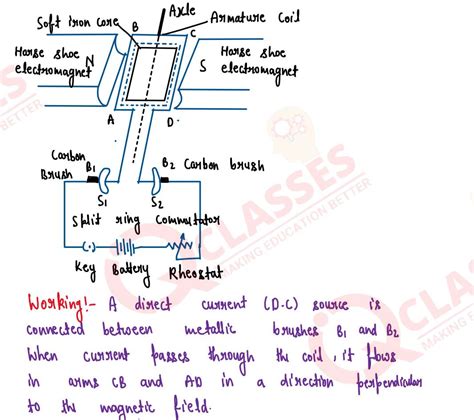 Axle
Soft iron core B Armature Coil
C
Horse shoe N Horse shoe
electromagnet S electromagnet
A D
Carbon B1 B2 Carbon brush
Brush
S1 S2
Split ring Commutator
Key Battery Rheostat
Working:- A direct current (D.C) source is
connected between metallic brushes B1 and B2
When current passes through the coil, it flows
in arms CB and AD in a direction perpendicular
to the magnetic field.
CLASSES
MAKING EDUCATION BETTER
CLASSES
MAKING
BETTER